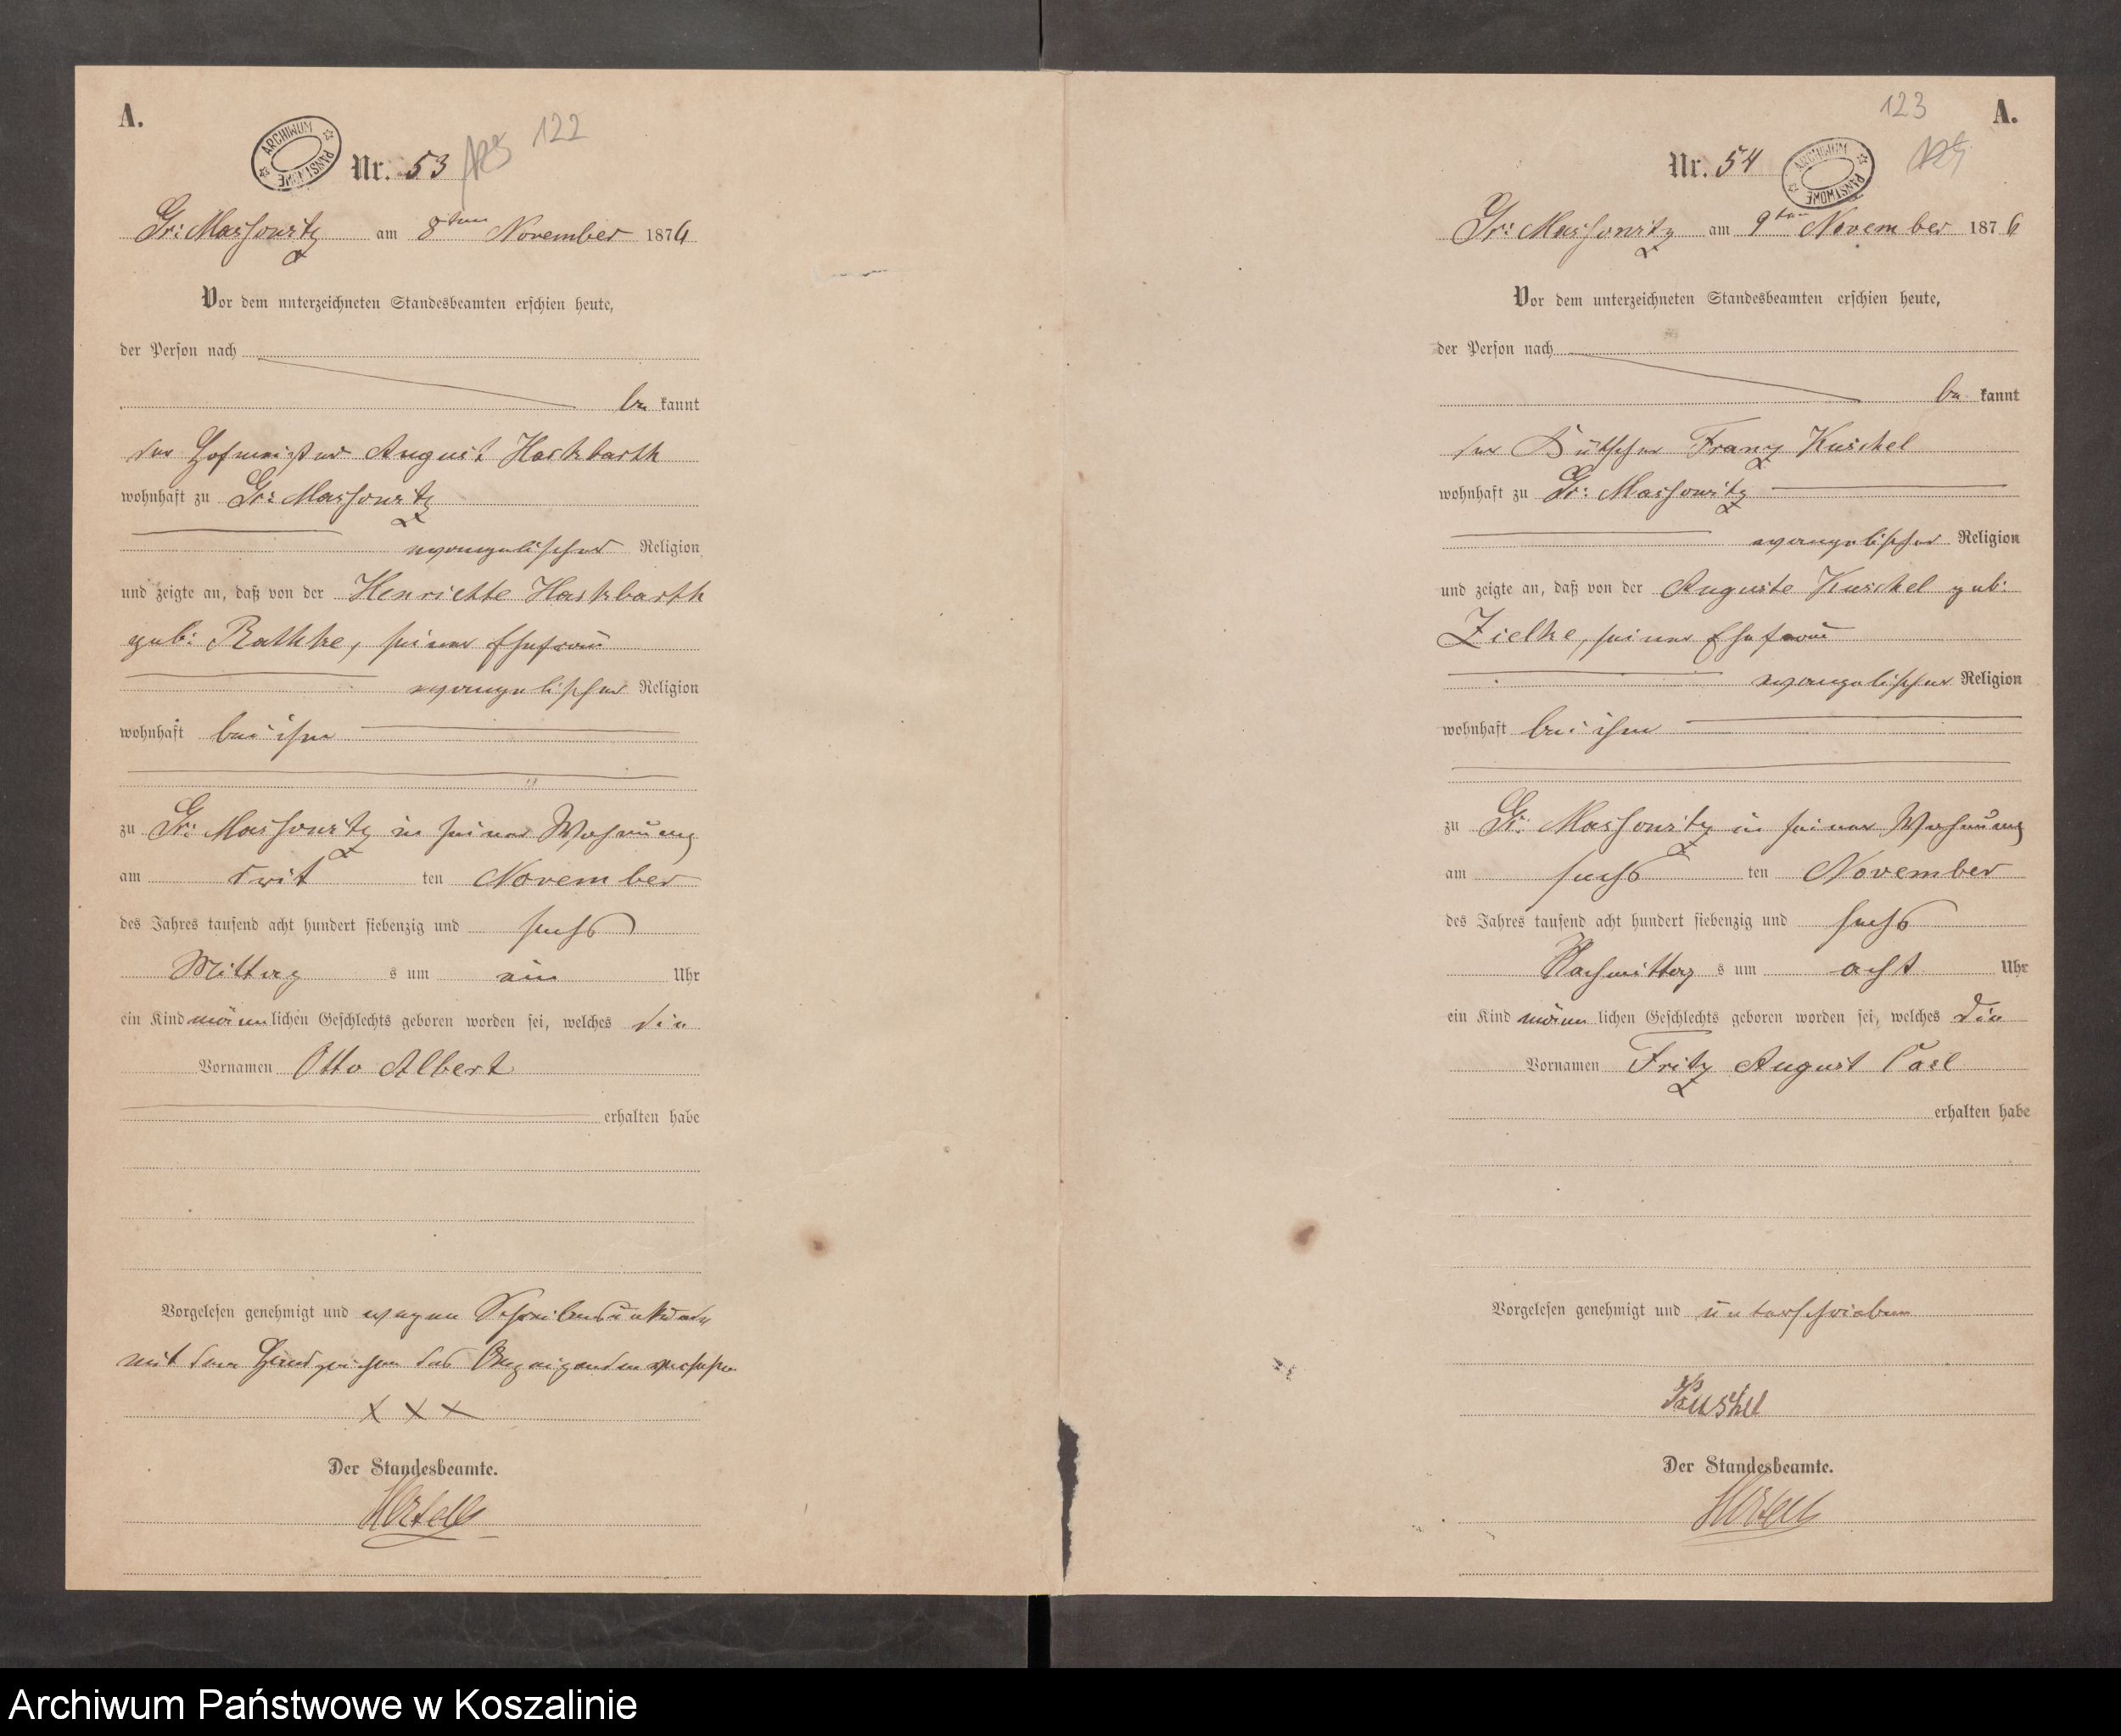 A.
ARCHIWUM PAŃSTWOWE
Nr. 53 122
Gr: Massowitz am 8ten November 1876
Vor dem unterzeichneten Standesbeamten erschien heute,
der Person nach
be kannt
der Hofmeister August Hackbarth
wohnhaft zu Gr: Massowitz
evangelischer Religion
und zeigte an, daß von der Henriette Hackbarth
geb: Rathke, seiner Ehefrau
evangelischer Religion
wohnhaft bei ihm
zu Gr: Massowitz in seiner Wohnung
am drit ten November
des Jahres tausend acht hundert siebenzig und sechs
Mittag s um ein Uhr
ein Kind männ lichen Geschlechts geboren worden sei, welches die
Vornamen Otto Albert
erhalten habe
Vorgelesen genehmigt und wegen Schreibensunkunde
mit dem Handzeichen des Anzeigenden versehen
x x x
Der Standesbeamte.
123 A.
Nr. 54
ARCHIWUM PAŃSTWOWE
Gr: Massowitz am 9ten November 1876
Vor dem unterzeichneten Standesbeamten erschien heute,
der Person nach
be kannt
der Franz Kuschel
wohnhaft zu Gr: Massowitz
evangelischer Religion
und zeigte an, daß von der Auguste Kuschel geb:
Zielke, seiner Ehefrau
evangelischer Religion
wohnhaft bei ihm
zu Gr: Massowitz in seiner Wohnung
am sechs ten November
des Jahres tausend acht hundert siebenzig und sechs
Nachmittag s um acht Uhr
ein Kind männ lichen Geschlechts geboren worden sei, welches die
Vornamen Fritz August Carl
erhalten habe
Vorgelesen genehmigt und unterschrieben
Kuschel
Der Standesbeamte.
Archiwum Państwowe w Koszalinie